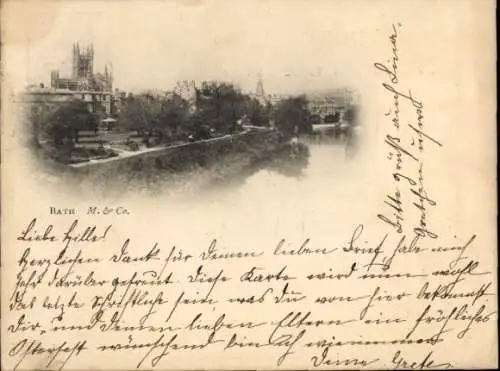 BATH M. & Co.
Liebe Hille!
Herzlichen Dank für Deinen lieben Brief, habe mich
sehr darüber gefreut. Diese Karte wird nun wohl
das letzte Schriftliche sein was Du von hier bekommst.
Dir, und Deinen lieben Eltern ein fröhliches
Osterfest wünschend bin ich wie immer
Deine Grete.
Bitte grüß auch Lina,
Gretchen